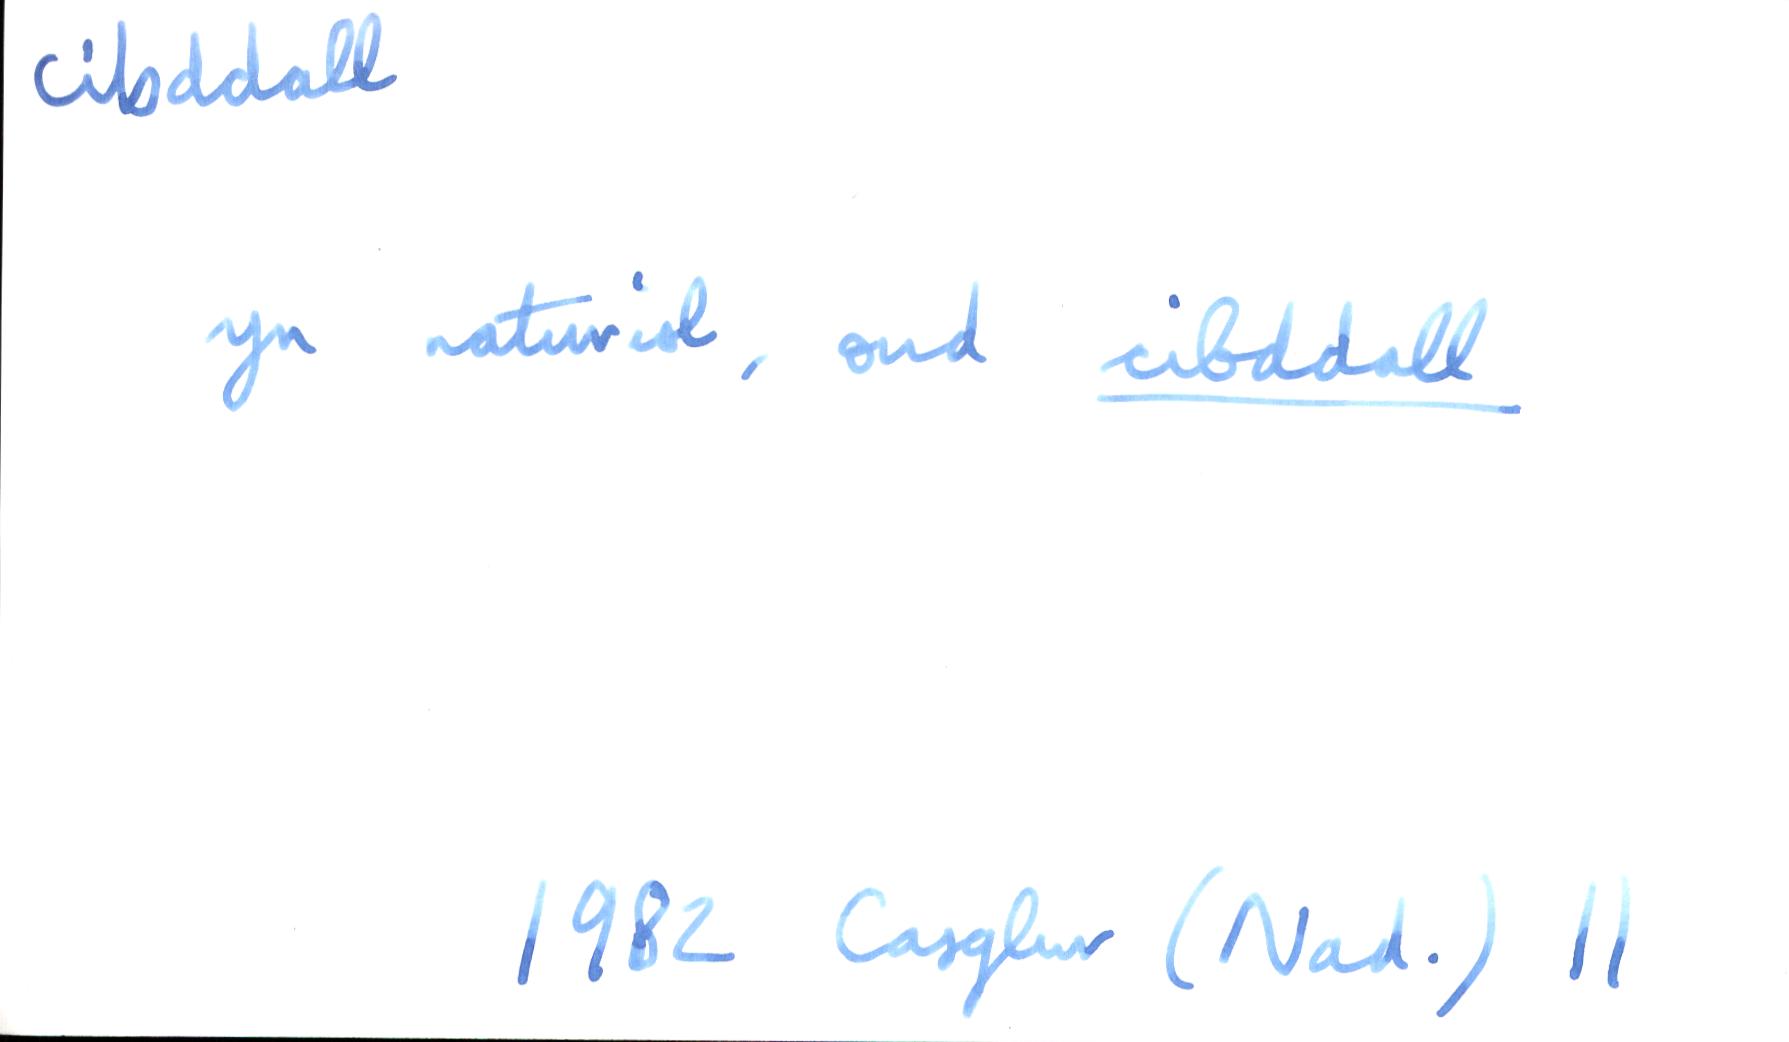 cibddall
yn naturiol, ond cibddall
1982 Casglwr (Nad.) 11